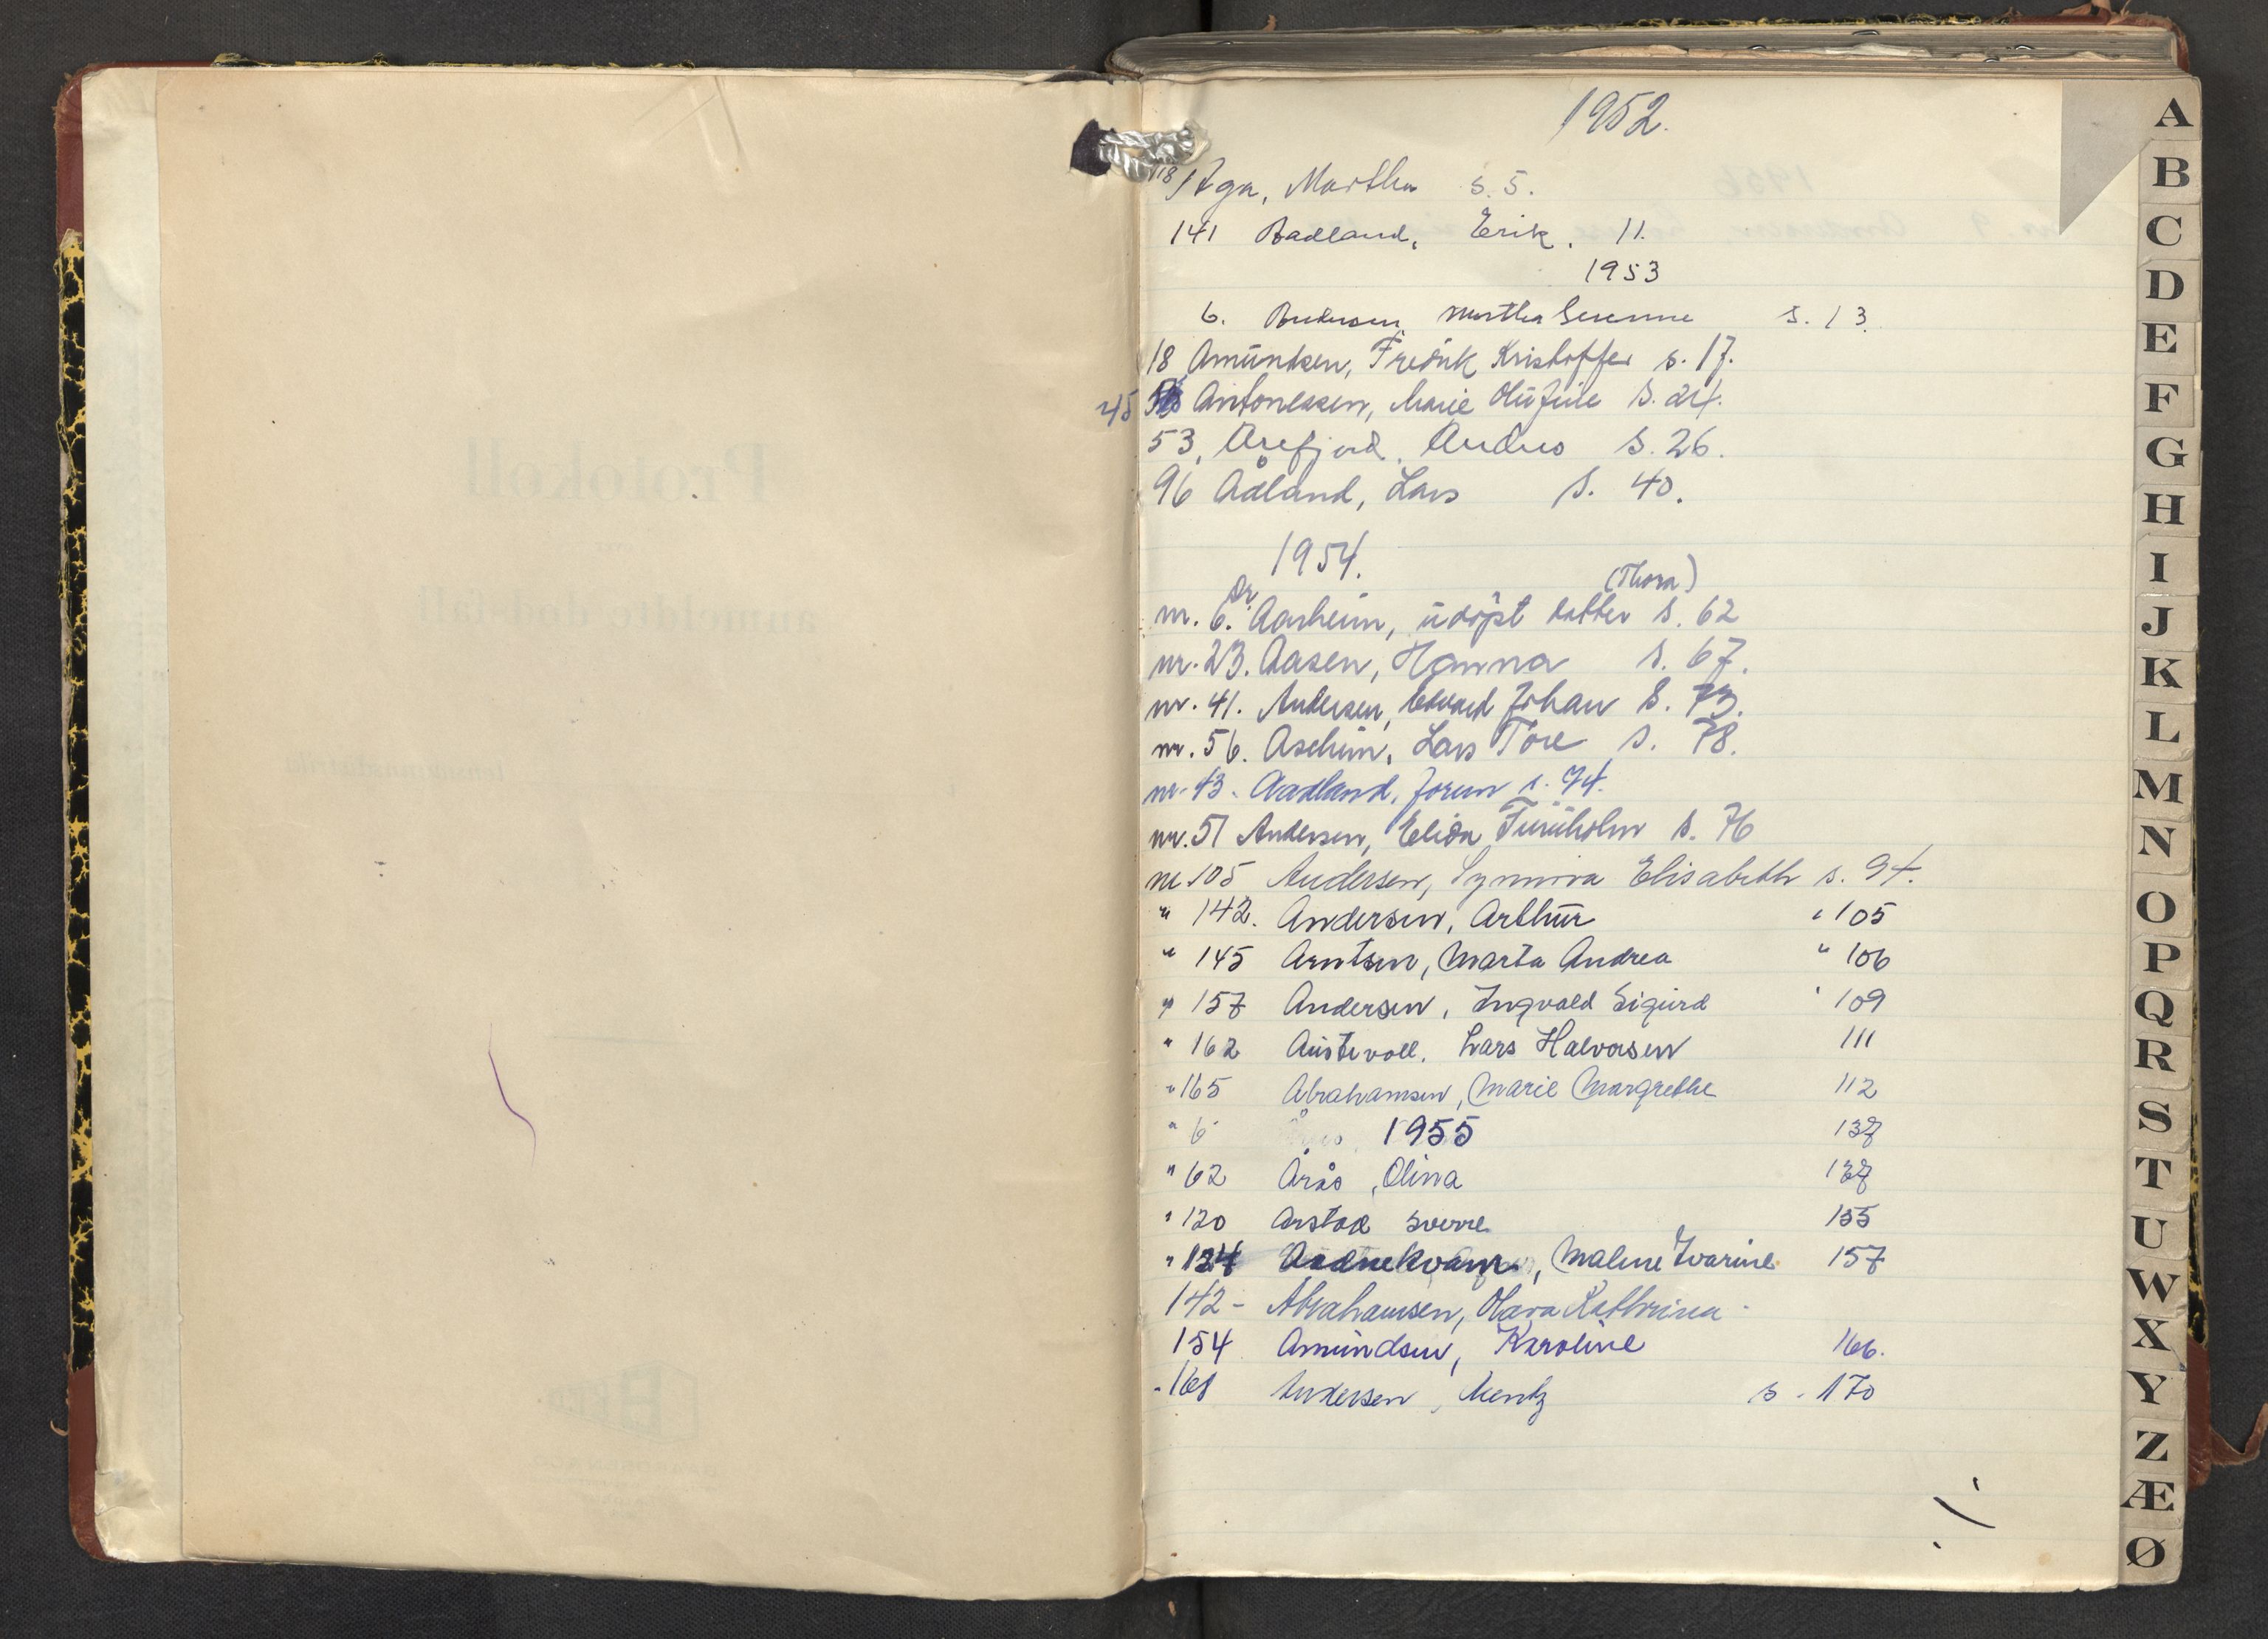 Protokoll
anmeldte dødsfall
lensmannsdistrikt
1952.
118 Aga, Martha s. 5.
141 Aadland, Erik. 11.
1953
6. Andersen, Martha Serenne s. 13.
18 Amundsen, Fredrik Kristoffer s. 17.
45 Antonessen, Marie Olufine s. 24.
53, Arefjord. Andreas s. 26.
96 Ådland, Lars s. 40.
1954.
(Thora)
nr. 6. Aarheim, udøpt datter s. 62
nr. 23. Aasen, Hanna s. 67.
nr. 41. Andersen, Edvard Johan s. 73.
nr. 56. Aseheim, Lars Tore s. 78.
nr. 43. Aadland, Jorun s. 74.
nr. 51 Andersen, Elida Furuholm s. 76
nr 105 Andersen, Synnøva Elisabeth s. 94.
" 142. Andersen, Arthur " 105
" 145 Arntsen, Marta Andrea " 106
" 157 Andersen, Ingvald Sigurd " 109
" 162 Austevoll, Lars Halvorsen 111
" 165 Abrahamsen, Marie Margrethe 112
" 6 1955 137
" 62 Årås, Olina 137
" 120 Arstad Sverre 155
" 134 Aadnekvam, Malene Ivarine 157
142 - Abrahamsen, Olava Kathrina -
154 Amundsen, Karoline 166.
- 168 Andersen, Mentz s. 170
A
B
C
D
E
F
G
H
I
J
K
L
M
N
O
P
Q
R
S
T
U
W
X
Y
Z
Æ
Ø